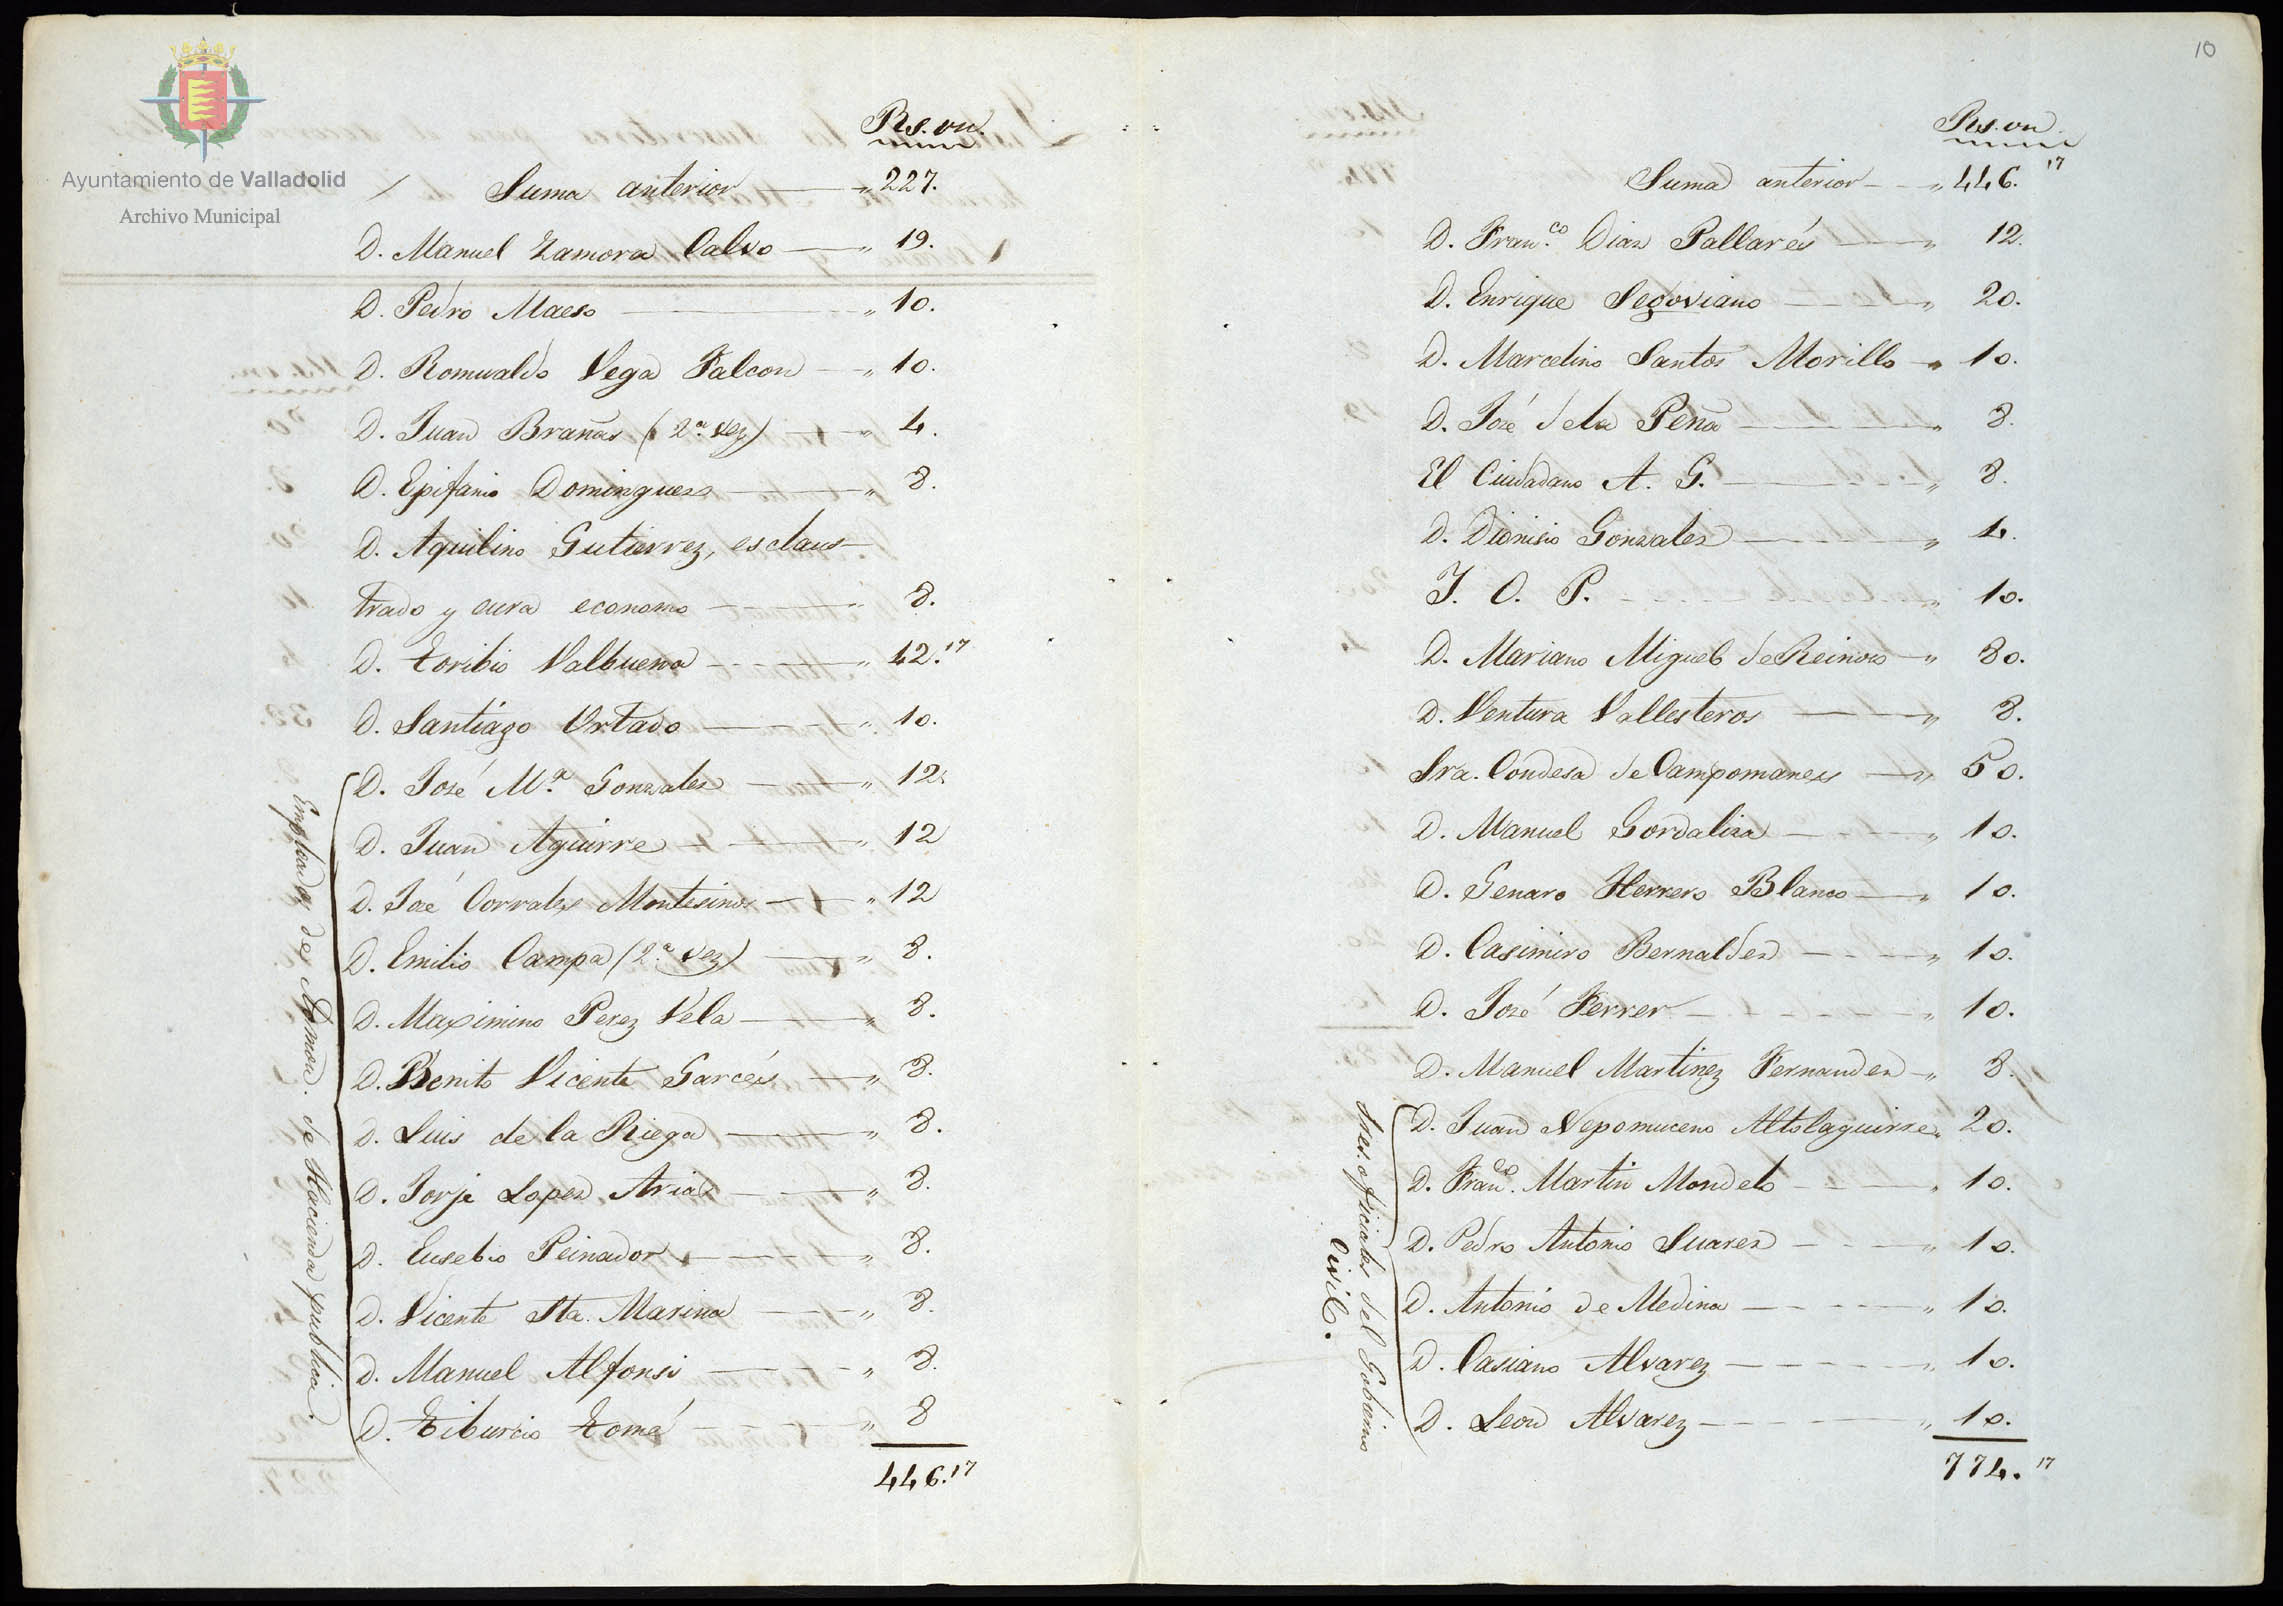 Ayuntamiento de Valladolid
Archivo Municipal
Rs. vn.
Suma anterior 227.
D. Manuel Zamora Calvo 19.
D. Pedro Maeso 10.
D. Romualdo Vega Falcon 10.
D. Juan Brañas (2.ª vez) 4.
D. Epifanio Dominguez 8.
D. Aquilino Gutierrez, esclaus-
trado y cura economo 8.
D. Toribio Valbuena 42.17
D. Santiago Urtado 10.
D. José M.ª Gonzalez 12.
D. Juan Aguirre 12
D. José Corrales Montesinos 12
D. Emilio Campa (2.ª vez) 8.
D. Maximino Perez Vela 8.
D. Benito Vicente Garcés 8.
D. Luis de la Riega 8.
D. Jorje Lopez Arias 8.
D. Eusebio Peinador 8.
D. Vicente Sta. Marina 8.
D. Manuel Alfonso 8.
D. Tiburcio Tomé 8
446.17
Empleados de Admon. de Hacienda publica.
10
Rs. vn.
Suma anterior 446.17
D. Fran.co Diaz Pallarés 12.
D. Enrique Segoviano 20.
D. Marcelino Santos Morillo 10.
D. José de la Peña 8.
El Ciudadano A. G. 8.
D. Dionisio Gonzalez 4.
J. O. P. 10.
D. Mariano Miguel de Reinoso 80.
D. Ventura Vallesteros 8.
Sra. Condesa de Campomanes 50.
D. Manuel Gordaliza 10.
D. Genaro Herrero Blanco 10.
D. Casimiro Bernaldez 10.
D. José Ferrer 10.
D. Manuel Martinez Fernandez 8.
D. Juan Nepomuceno Altolaguirre 20.
D. Fran.co Martin Mondelo 10.
D. Pedro Antonio Suarez 10.
D. Antonio de Medina 10.
D. Casiano Alvarez 10.
D. Leon Alvarez 10.
774.17
Sres. oficiales del Gobierno
Civil.